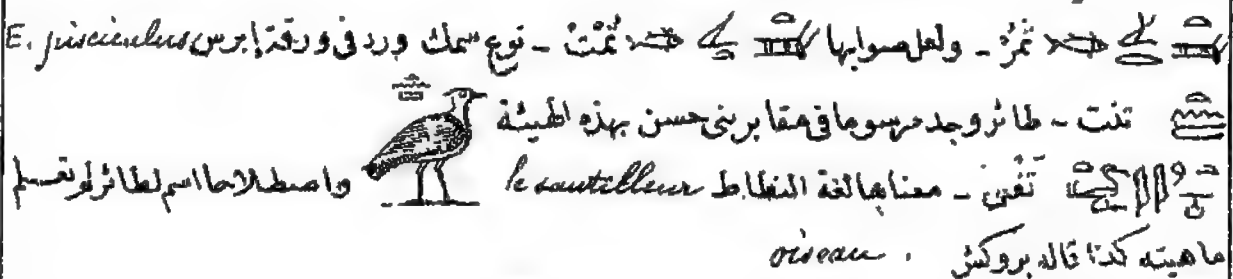 ثمرُ - ولعل صوابها ثمْتْ - نوع سمك ورد فى ورقة إبرس E. pisciculus
تنت - طائر وجد مرسوما فى مقابر بنى حسن بهذه الهيئة
تَفْنِن - معناها لغة النطاط le sautilleur واصطلاحا اسم لطائر لم تعلم
ماهيته كذا قاله بروكش . oiseau